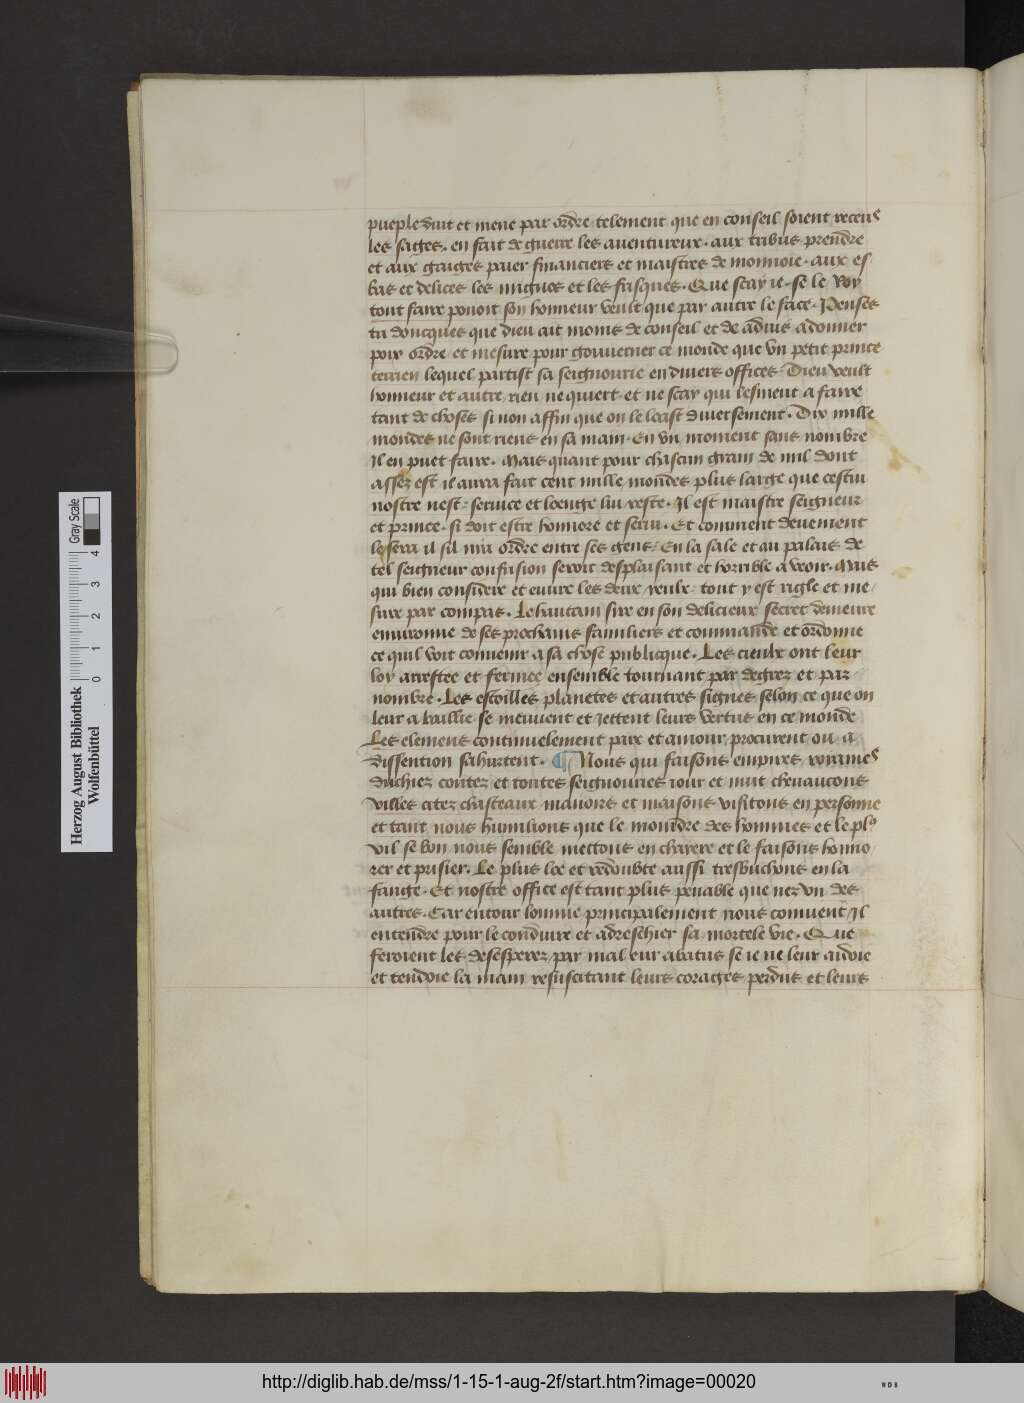 pueple duit et mene par ordre telement que en conseil soient receus
les sages. en fait de guerre les auentureux. aux tribus prendre
et aux gaiges paier financiers et maistres de monnoie. aux es
bas et delices les mignos et les fusques. Que scay ie. se le Roy
tout faire pouoit son honneur veult que par autre le face. Penses
tu doncques que dieu ait moins de conseil et de aduis a donner
poix ordre et mesure pour gouuerner ce monde que vn petit prince
terrien lequel partist sa seignourie en diuers offices. Dieu veult
honneur et autre rien ne quiert. et ne scay qui lesmeut a faire
tant de choses si non affin que on le loast diuersement. Dix mille
mondes ne sont riens en sa main. En vn moment sans nombre
Il en puet faire. Mais quant pour chascun grain de mil dont
assez est il aura fait cent mille mondes plus large que cestui
nostre nest. seruice et loenge lui reste. Il est maistre seigneur
et prince. si doit estre honnore et serui. Et comment deuement
le sera il sil nya ordre entre ses gens. En la sale et au palais de
tel seigneur confusion seroit desplaisant et horrible a veoir. Mais
qui bien considere et euure les deux yeulx. tout y est rigle et me
sure par compas. Le haultain sire en son delicieux secret demeure
enuironne de ses prochains familiers et commande et ordonne
ce quil voit conuenir a sa chose publicque. Les cieulx ont leur
loy arrestee et fermee ensemble tournant par degrez et par
nombre. Les estoilles planetes et autres signes selon ce que on
leur a baillie se meuuent et Jettent leurs vertus en ce monde
Les elemens continuelement paix et amour procurent ou a
dissention sahurtent. ¶ Nous qui faisons empires roiames
duchiez contez et toutes seignouries iour et nuit cheuaucons
villes citez chasteaux manoirs et maisons visitons en personne
et tant nous humilions que le moindre des hommes et le pl9
vil se bon nous semble mettons en chayere et le faisons honno
rer et prisier. Le plus loe et redoubte aussi tresbuchons en la
fange. Et nostre office est tant plus penable que nez vn des
autres. Car entour lomme principalement nous conuient Jl
entendre pour le conduire et adreschier sa mortele vie. Que
feroient les desesperez par mal eur abatus se ie ne leur aidoie
et tendoie la main resuscitant leurs corages perdus et leurs
Herzog August Bibliothek
Wolfenbüttel
Gray Scale
0 1 2 3 4
http://diglib.hab.de/mss/1-15-1-aug-2f/start.htm?image=00020
WDB